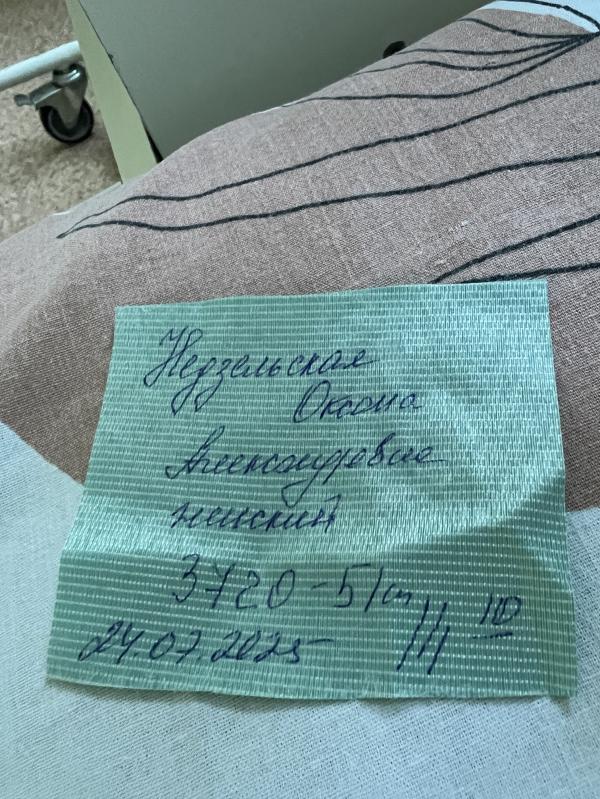 Недзельская
Оксана
Александровна
женский
3720-51см
24.07.2025